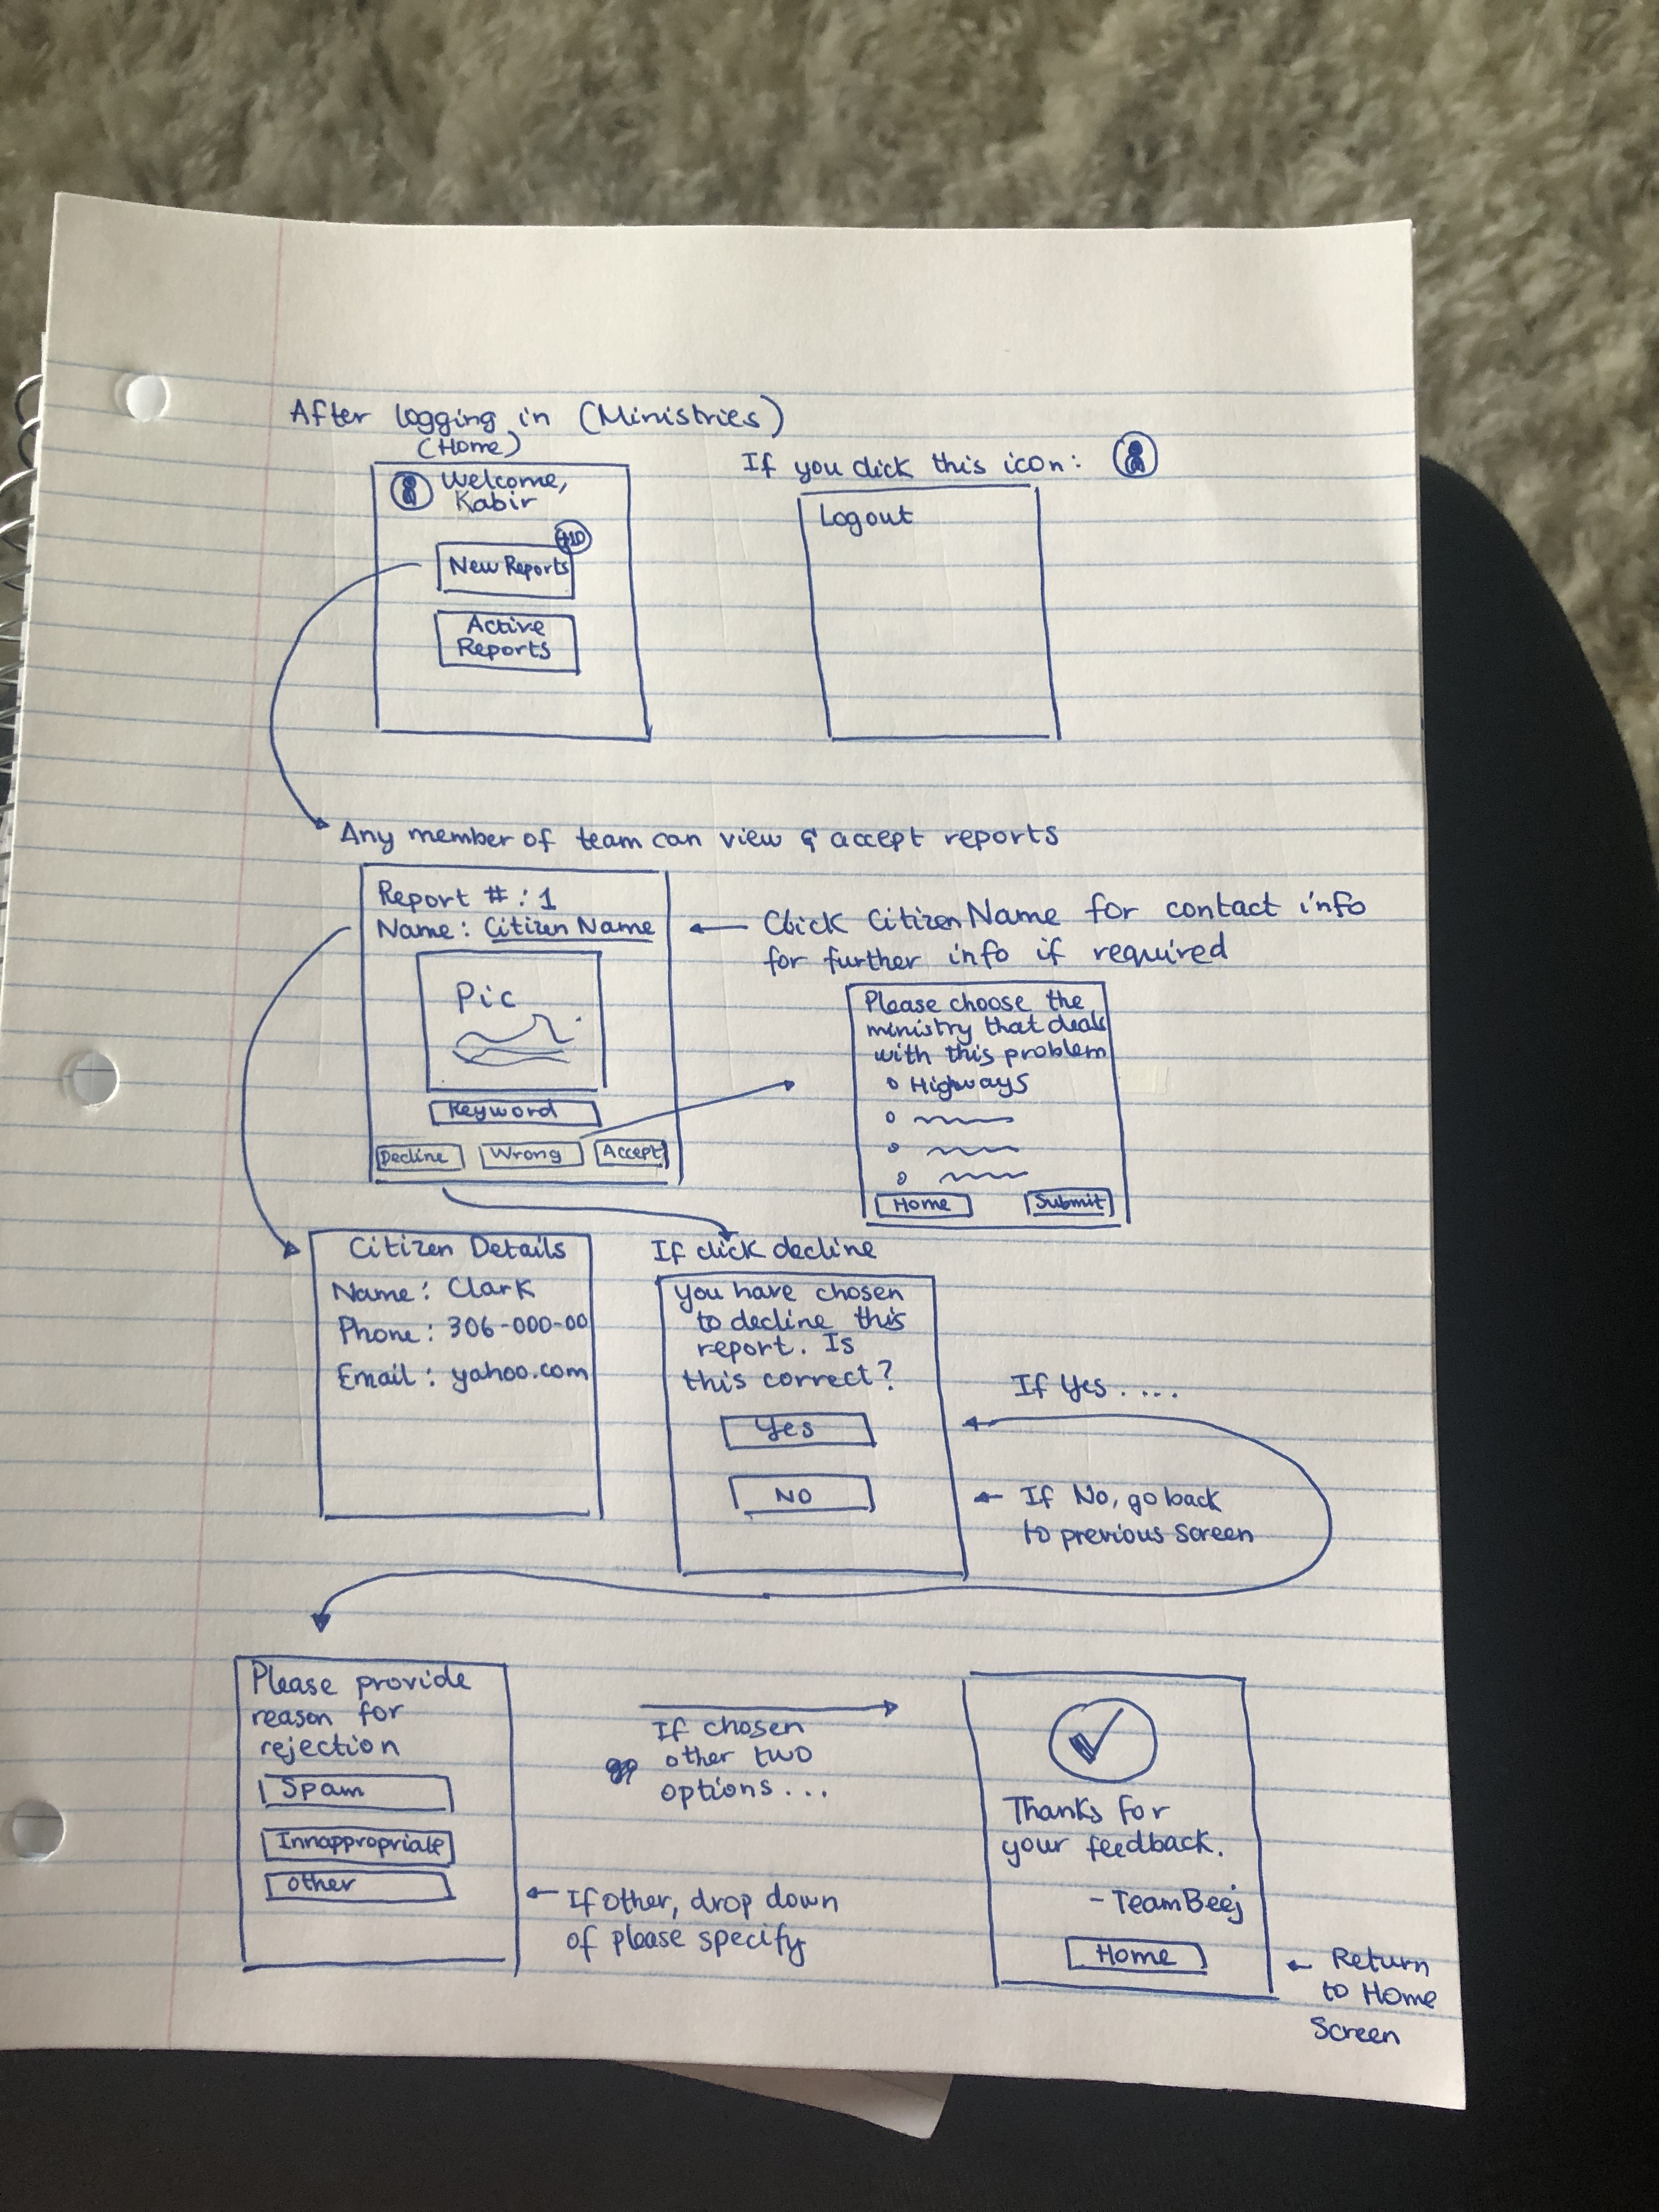 After logging in (Ministries)
(Home)
Welcome,
Kabir
+10
New Reports
Active
Reports
If you click this icon:
Logout
Any member of team can view & accept reports
Report # : 1
Name : Citizen Name
Pic
Keyword
Decline
Wrong
Accept
Click Citizen Name for contact info
for further info if required
Please choose the
ministry that deals
with this problem
Highways
Home
Submit
Citizen Details
Name : Clark
Phone : 306-000-00
Email : yahoo.com
If click decline
You have chosen
to decline this
report. Is
this correct?
Yes
NO
If Yes.....
If No, go back
to previous screen
Please provide
reason for
rejection
Spam
Innappropriate
other
If chosen
other two
options...
If other, drop down
of please specify
Thanks for
your feedback.
- Team Beej
Home
Return
to Home
Screen